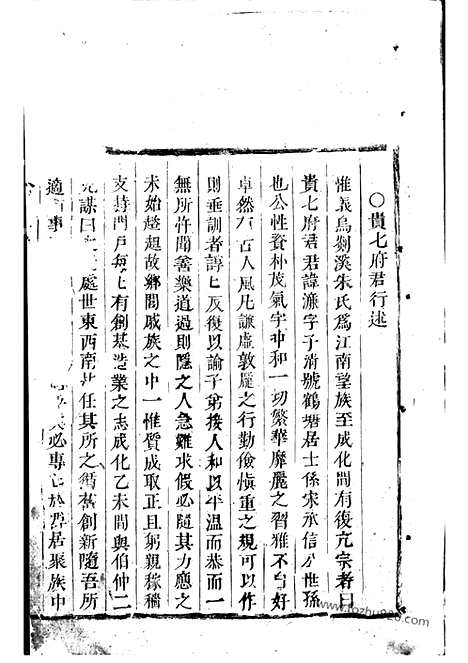 ○貴七府君行述
惟義烏剡溪朱氏爲江南望族至成化間有復亢宗者曰
貴七府君君諱濂字子淸號鶴塘居士係宋承信公世孫
也公性資朴茂氣宇冲和一切繁華靡麗之習雅不自好
卓然有古人風凡謙虛敦龐之行勤儉愼重之規可以作
則垂訓者諄匕反復以諭子弟接人和以平溫而恭而一
無所忤聞善樂道過則隱之人急難求假必隨其力應之
未始趑趄故鄉閭戚族之中一惟質成取正且躬親稼穡
支持門戶每匕有創基造業之志成化乙未間與伯仲二
兄謀曰 處世東西南北任其所之舊創新隨吾所
適 事 必專 於 居聚族中
www.fozhu920.com